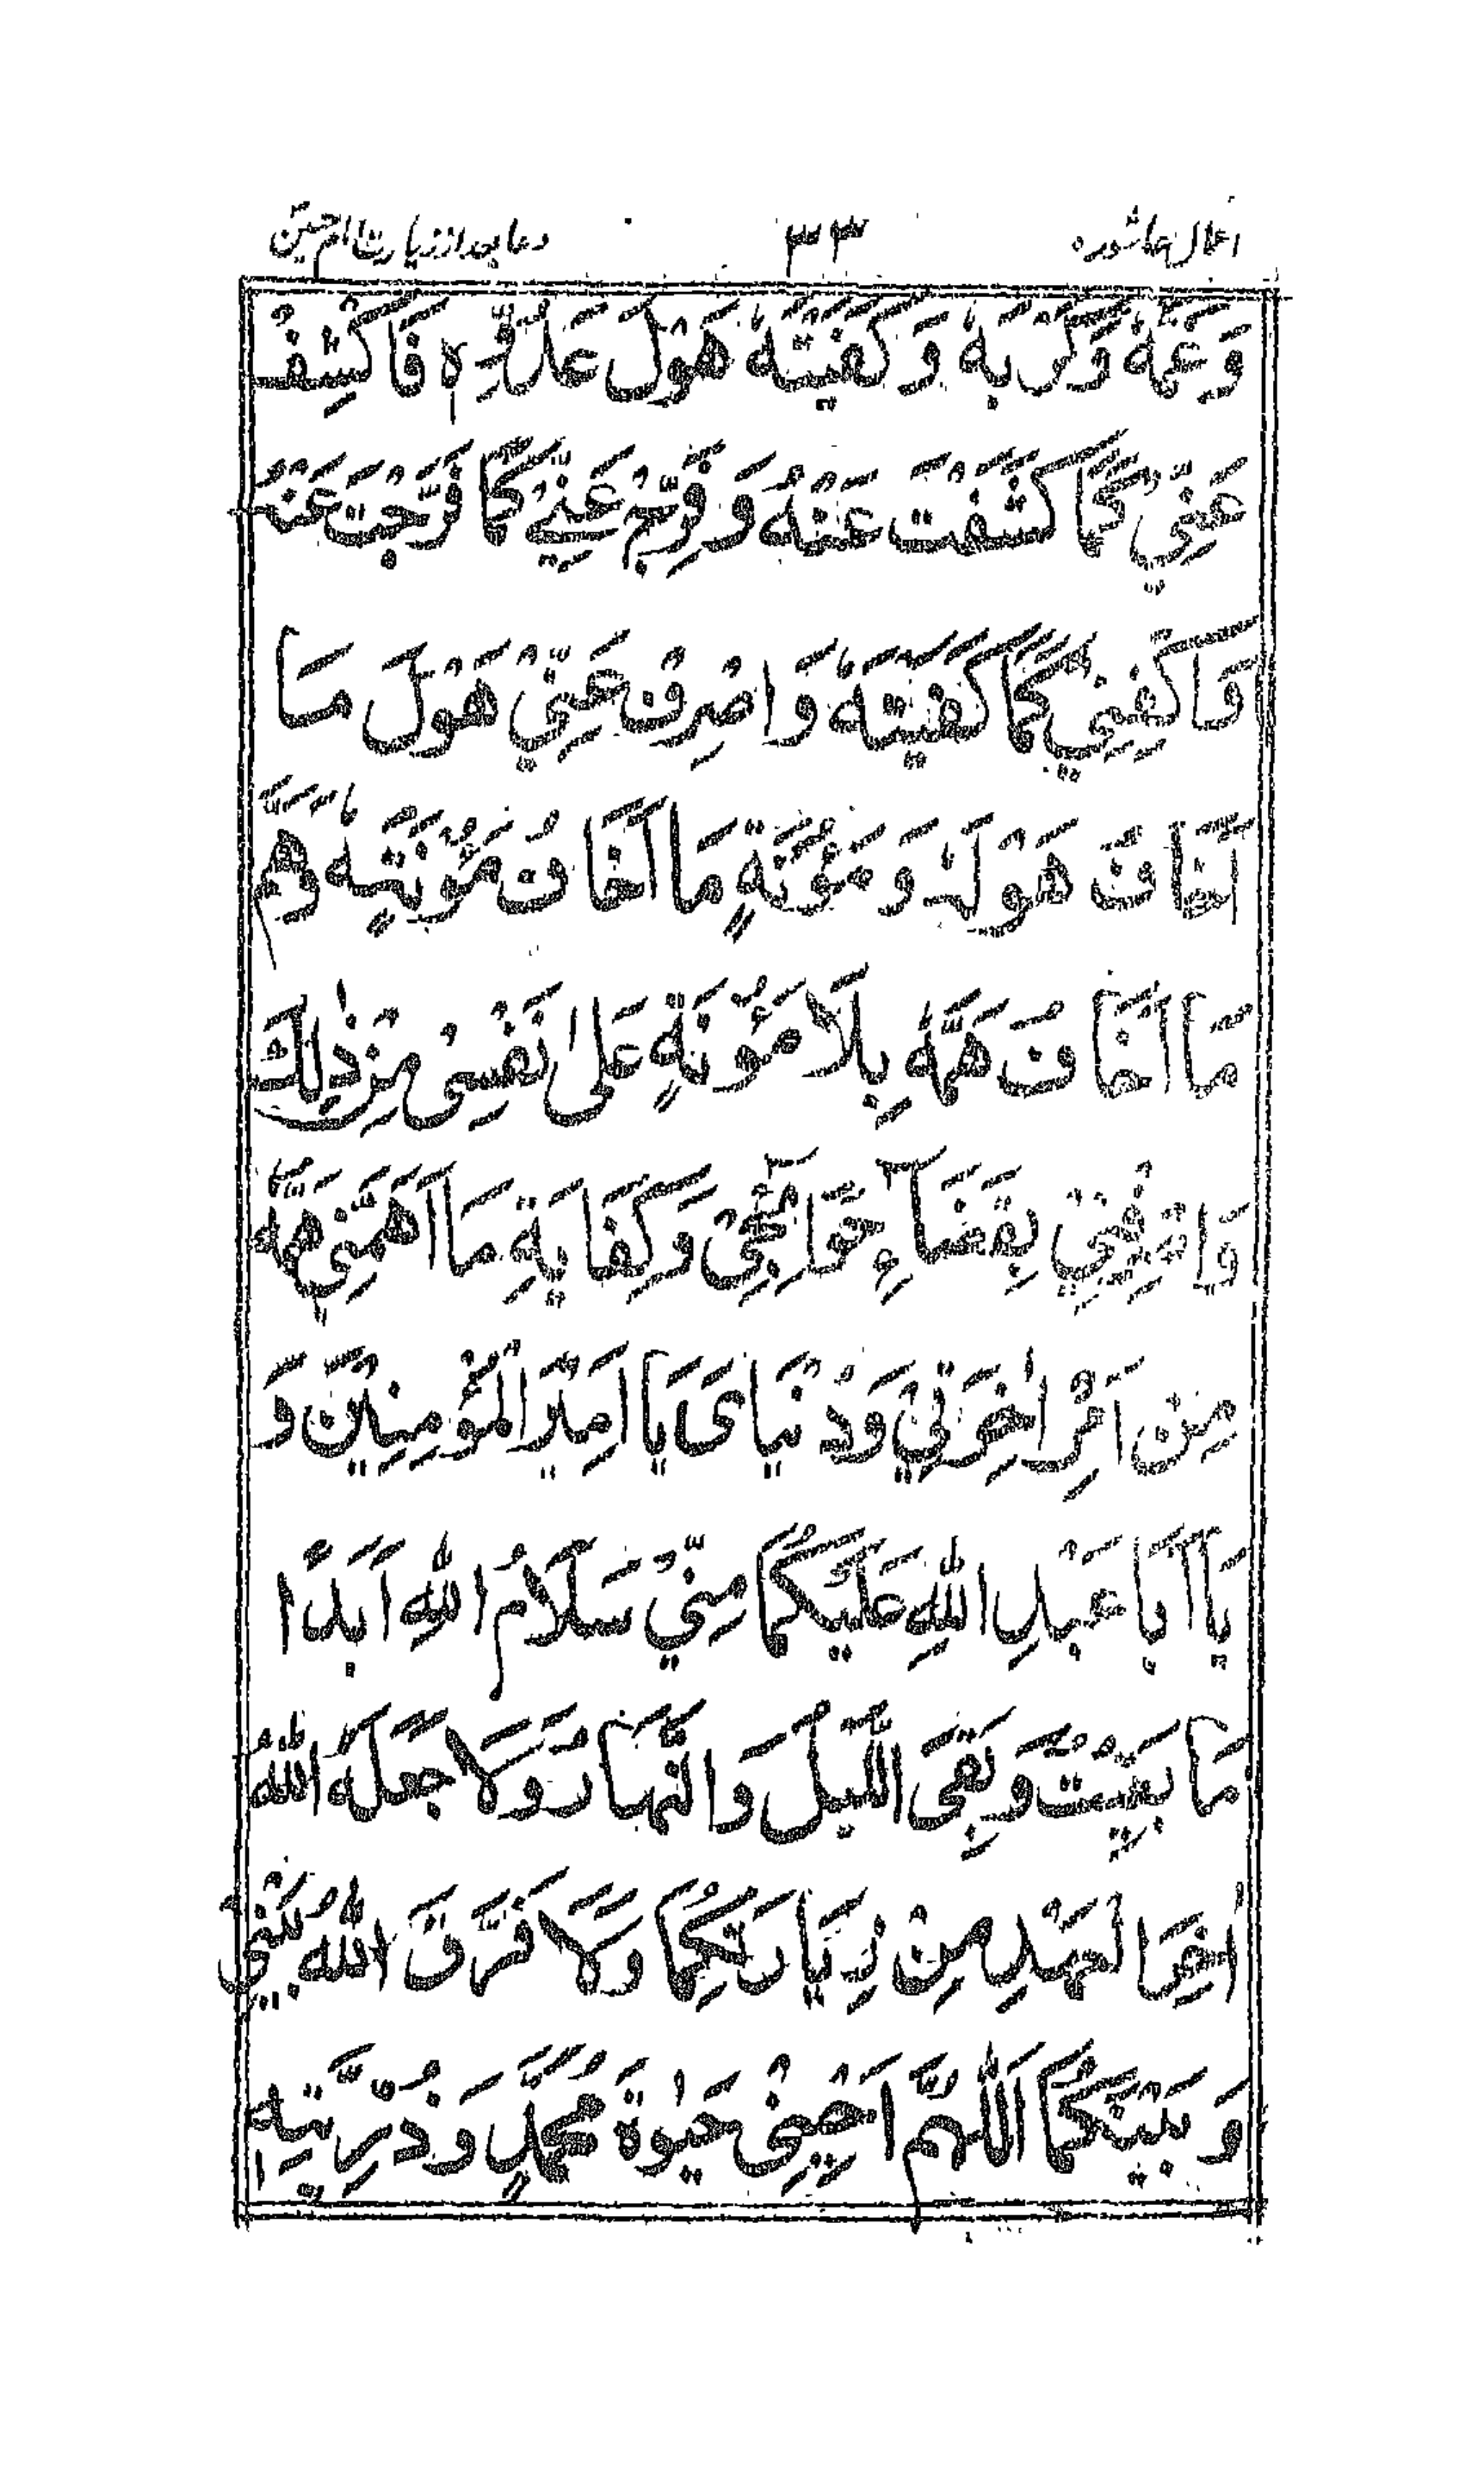 اعمال عاشورہ ۳۳ دعا بعد از زیارت امام حسینؑ
وَغَمَّهٗ وَكَرْبَهٗ وَكَفَيْتَهٗ هَوْلَ عَدُوِّهٖ فَاكْشِفْ
عَنِّيْ كَمَا كَشَفْتَ عَنْهُ وَفَرِّجْ عَنِّيْ كَمَا فَرَّجْتَ عَنْهُ
وَاكْفِنِيْ كَمَا كَفَيْتَهٗ وَاصْرِفْ عَنِّيْ هَوْلَ مَا
اَخَافُ هَوْلَهٗ وَمَؤُنَةٍ مَا اَخَافُ مَؤُنَتَهٗ وَهَمَّ
مَا اَخَافُ هَمَّهٗ بِلَا مَؤُنَةٍ عَلٰى نَفْسِىْ مِنْ ذٰلِكَ
وَاصْرِفْنِيْ بِقَضَآءِ حَوَآئِجِىْ وَكِفَايَةِ مَا اَهَمَّنِىْ هَمُّهٗ
مِنْ اَمْرِ اٰخِرَتِيْ وَدُنْيَاىَ يَا اَمِيْرَ الْمُؤْمِنِيْنَ وَ
يَا اَبَا عَبْدِ اللّٰهِ عَلَيْكُمَا مِنِّيْ سَلَامُ اللّٰهِ اَبَدًا
مَا بَقِيْتُ وَبَقِىَ اللَّيْلُ وَالنَّهَارُ وَلَا جَعَلَهُ اللّٰهُ
اٰخِرَ الْعَهْدِ مِنْ زِيَارَتِكُمَا وَلَا فَرَّقَ اللّٰهُ بَيْنِيْ
وَبَيْنَكُمَا اَللّٰهُمَّ اَحْيِنِىْ حَيٰوةَ مُحَمَّدٍ وَذُرِّيَّتِهٖ